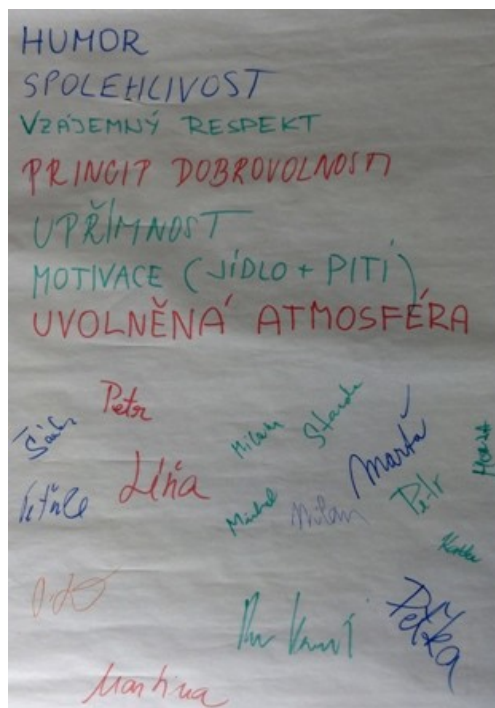 HUMOR
SPOLEHLIVOST
VZÁJEMNÝ RESPEKT
PRINCIP DOBROVOLNOSTI
UPŘÍMNOST
MOTIVACE (JÍDLO + PITÍ)
UVOLNĚNÁ ATMOSFÉRA
Petr
Milan
Standa
Marťa
Líňa
Michal
Milan
Petr
Katka
Peťka
Martina